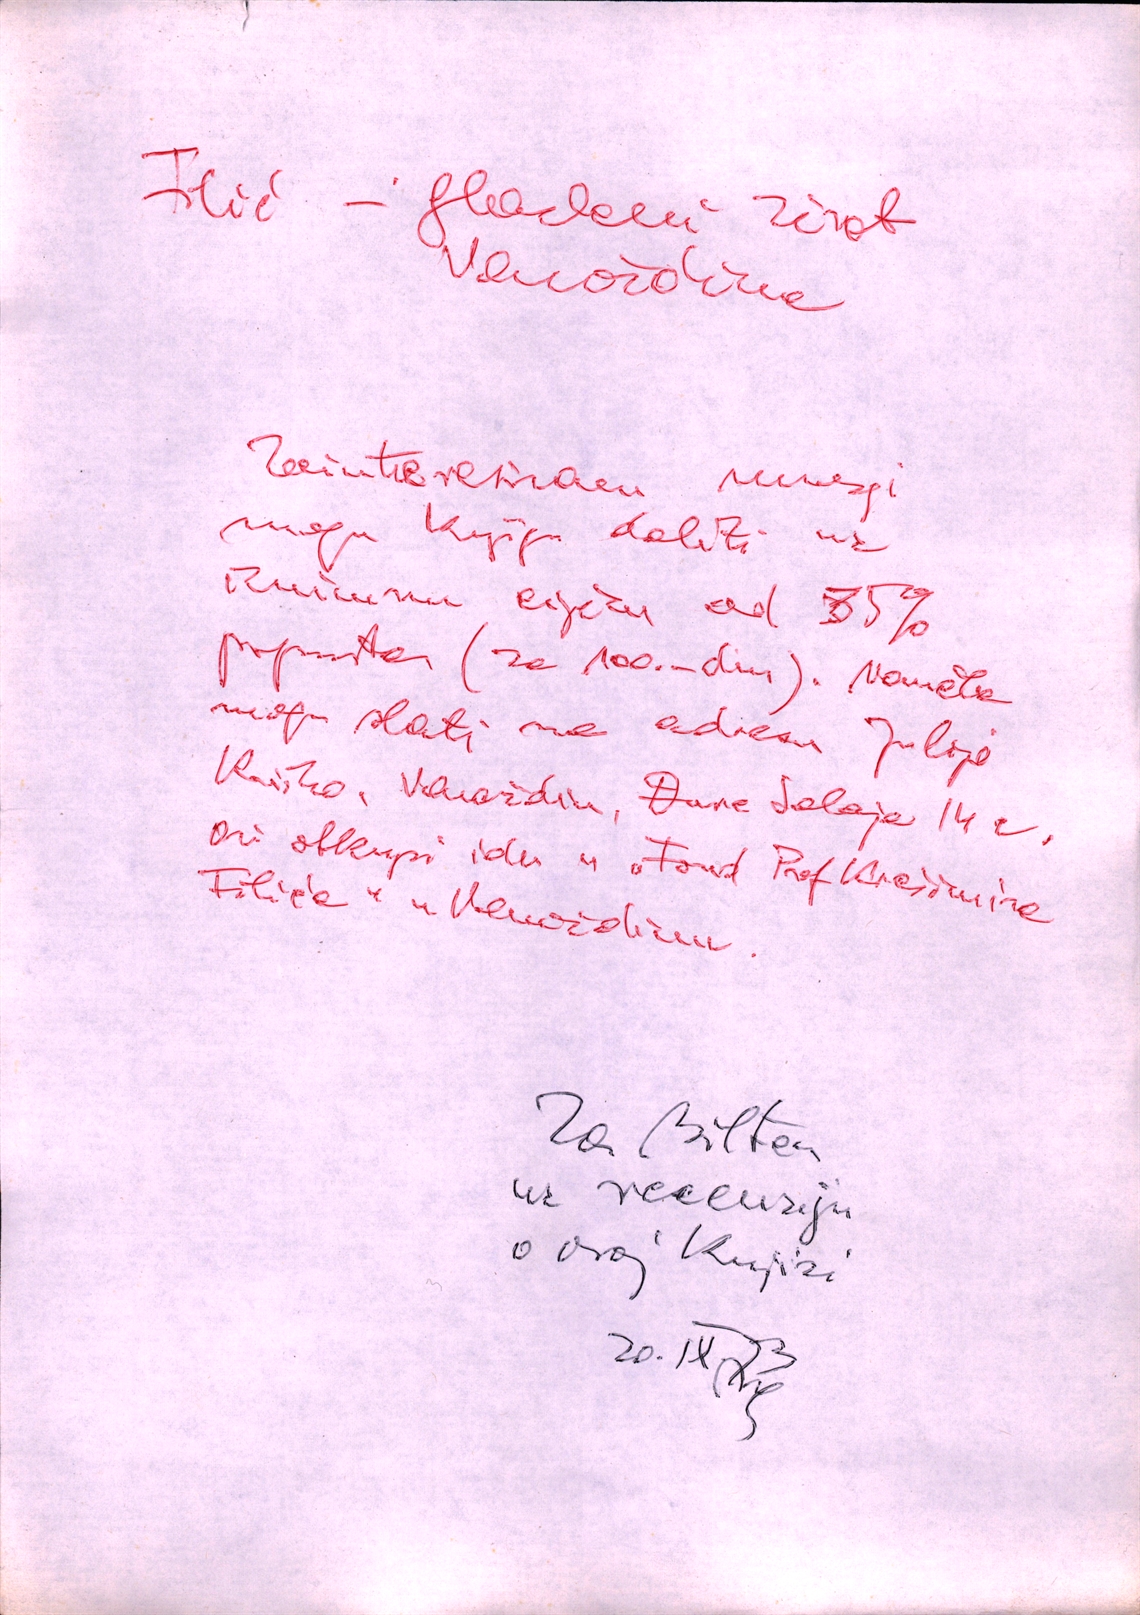 Filić – glazbeni život
Varaždina
Zainteresirani muzeji
mogu knjigu dobiti uz
iznimnu cijenu od 35%
popusta (za 100.– din). Narudžbe
mogu slati na adresu Julije
Kuiško, Varaždin, Đure Salaja 14 a.
Ovi otkupi idu u „Fond Prof Krešimira
Filića“ u Varaždinu.
Za Bilten
uz recenziju
o ovoj knjizi
20. IX 73